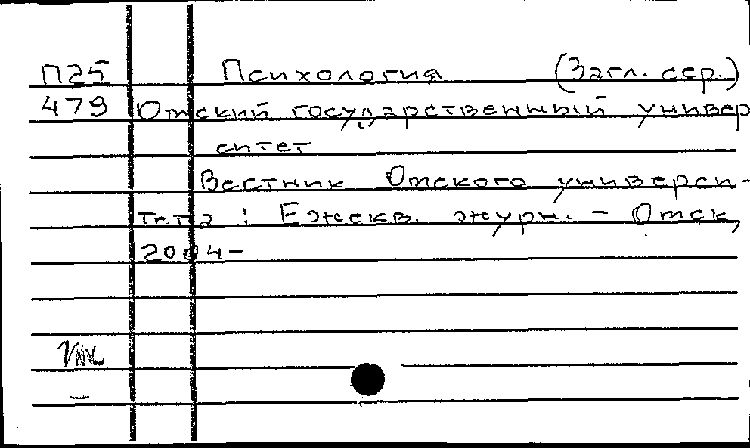 П25 Психология (Загл. сер.)
479 Омский государственный универ
ситет
Вестник Омского универси-
тета : Ежекв. журн. - Омск,
2004-